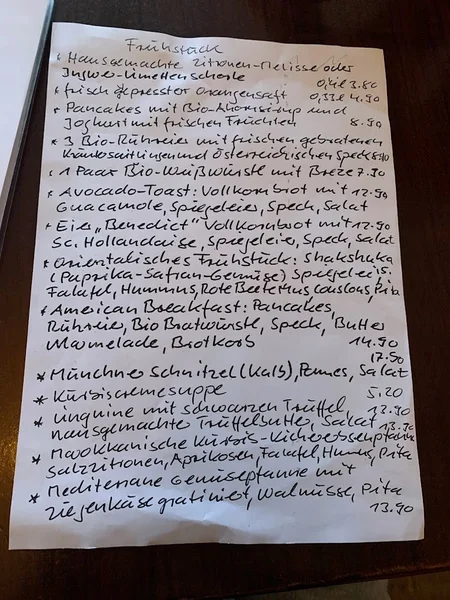 Frühstück
* Hausgemachte Zitronen-Melisse oder
Ingwer-Limettenschorle 0,4l 3.80
* frisch gepresster Orangensaft 0,33l 4.90
* Pancakes mit Bio-Ahornsirup und
Joghurt mit frischen Früchten 8.90
* 3 Bio-Rühreier mit frischen gebratenen
Kräutersaitlingen und Österreichischen Speck 8.90
* 1 Paar Bio-Weißwürstl mit Breze 7.90
* Avocado-Toast: Vollkornbrot mit 12.90
Guacamole, Spiegeleier, Speck, Salat
* Eier „Benedict" Vollkornbrot mit 12.90
Sc. Hollandaise, Spiegeleier, Speck, Salat
* Orientalisches Frühstück: Shakshuka
(Paprika-Safran-Gemüse) Spiegelei
Falafel, Hummus, Rote Beete Mus, Couscous, Pita
* American Breakfast: Pancakes,
Rühreier, Bio Bratwürstl, Speck, Butter
Marmelade, Brotkorb 14.90
17.90
* Münchner Schnitzel (Kalb), Pommes, Salat
* Kürbiscremesuppe 5.20
* Linguine mit schwarzen Trüffel, 12.90
hausgemachte Trüffelbutter, Salat 13.90
* Marokkanische Kürbis-Kichererbsenpfanne
Salzzitronen, Aprikosen, Falafel, Humus, Pita
* Mediterrane Gemüsepfanne mit
Ziegenkäse gratiniert, Walnüsse, Pita
13.90